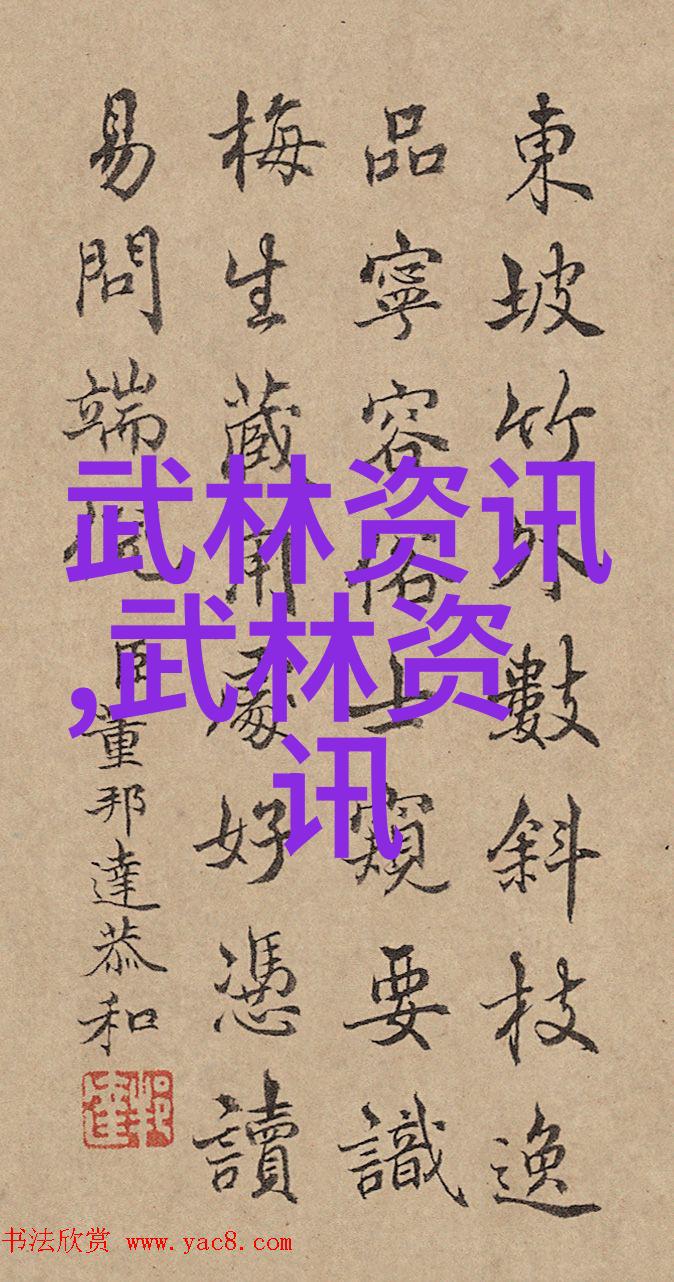 東坡竹外數斜枝逸
品寧容俗士窺要識
梅生藏用處好憑讀
易問端倪 臣董邦達恭和
武林资讯
,武林资
讯
书法欣赏 www.yac8.com